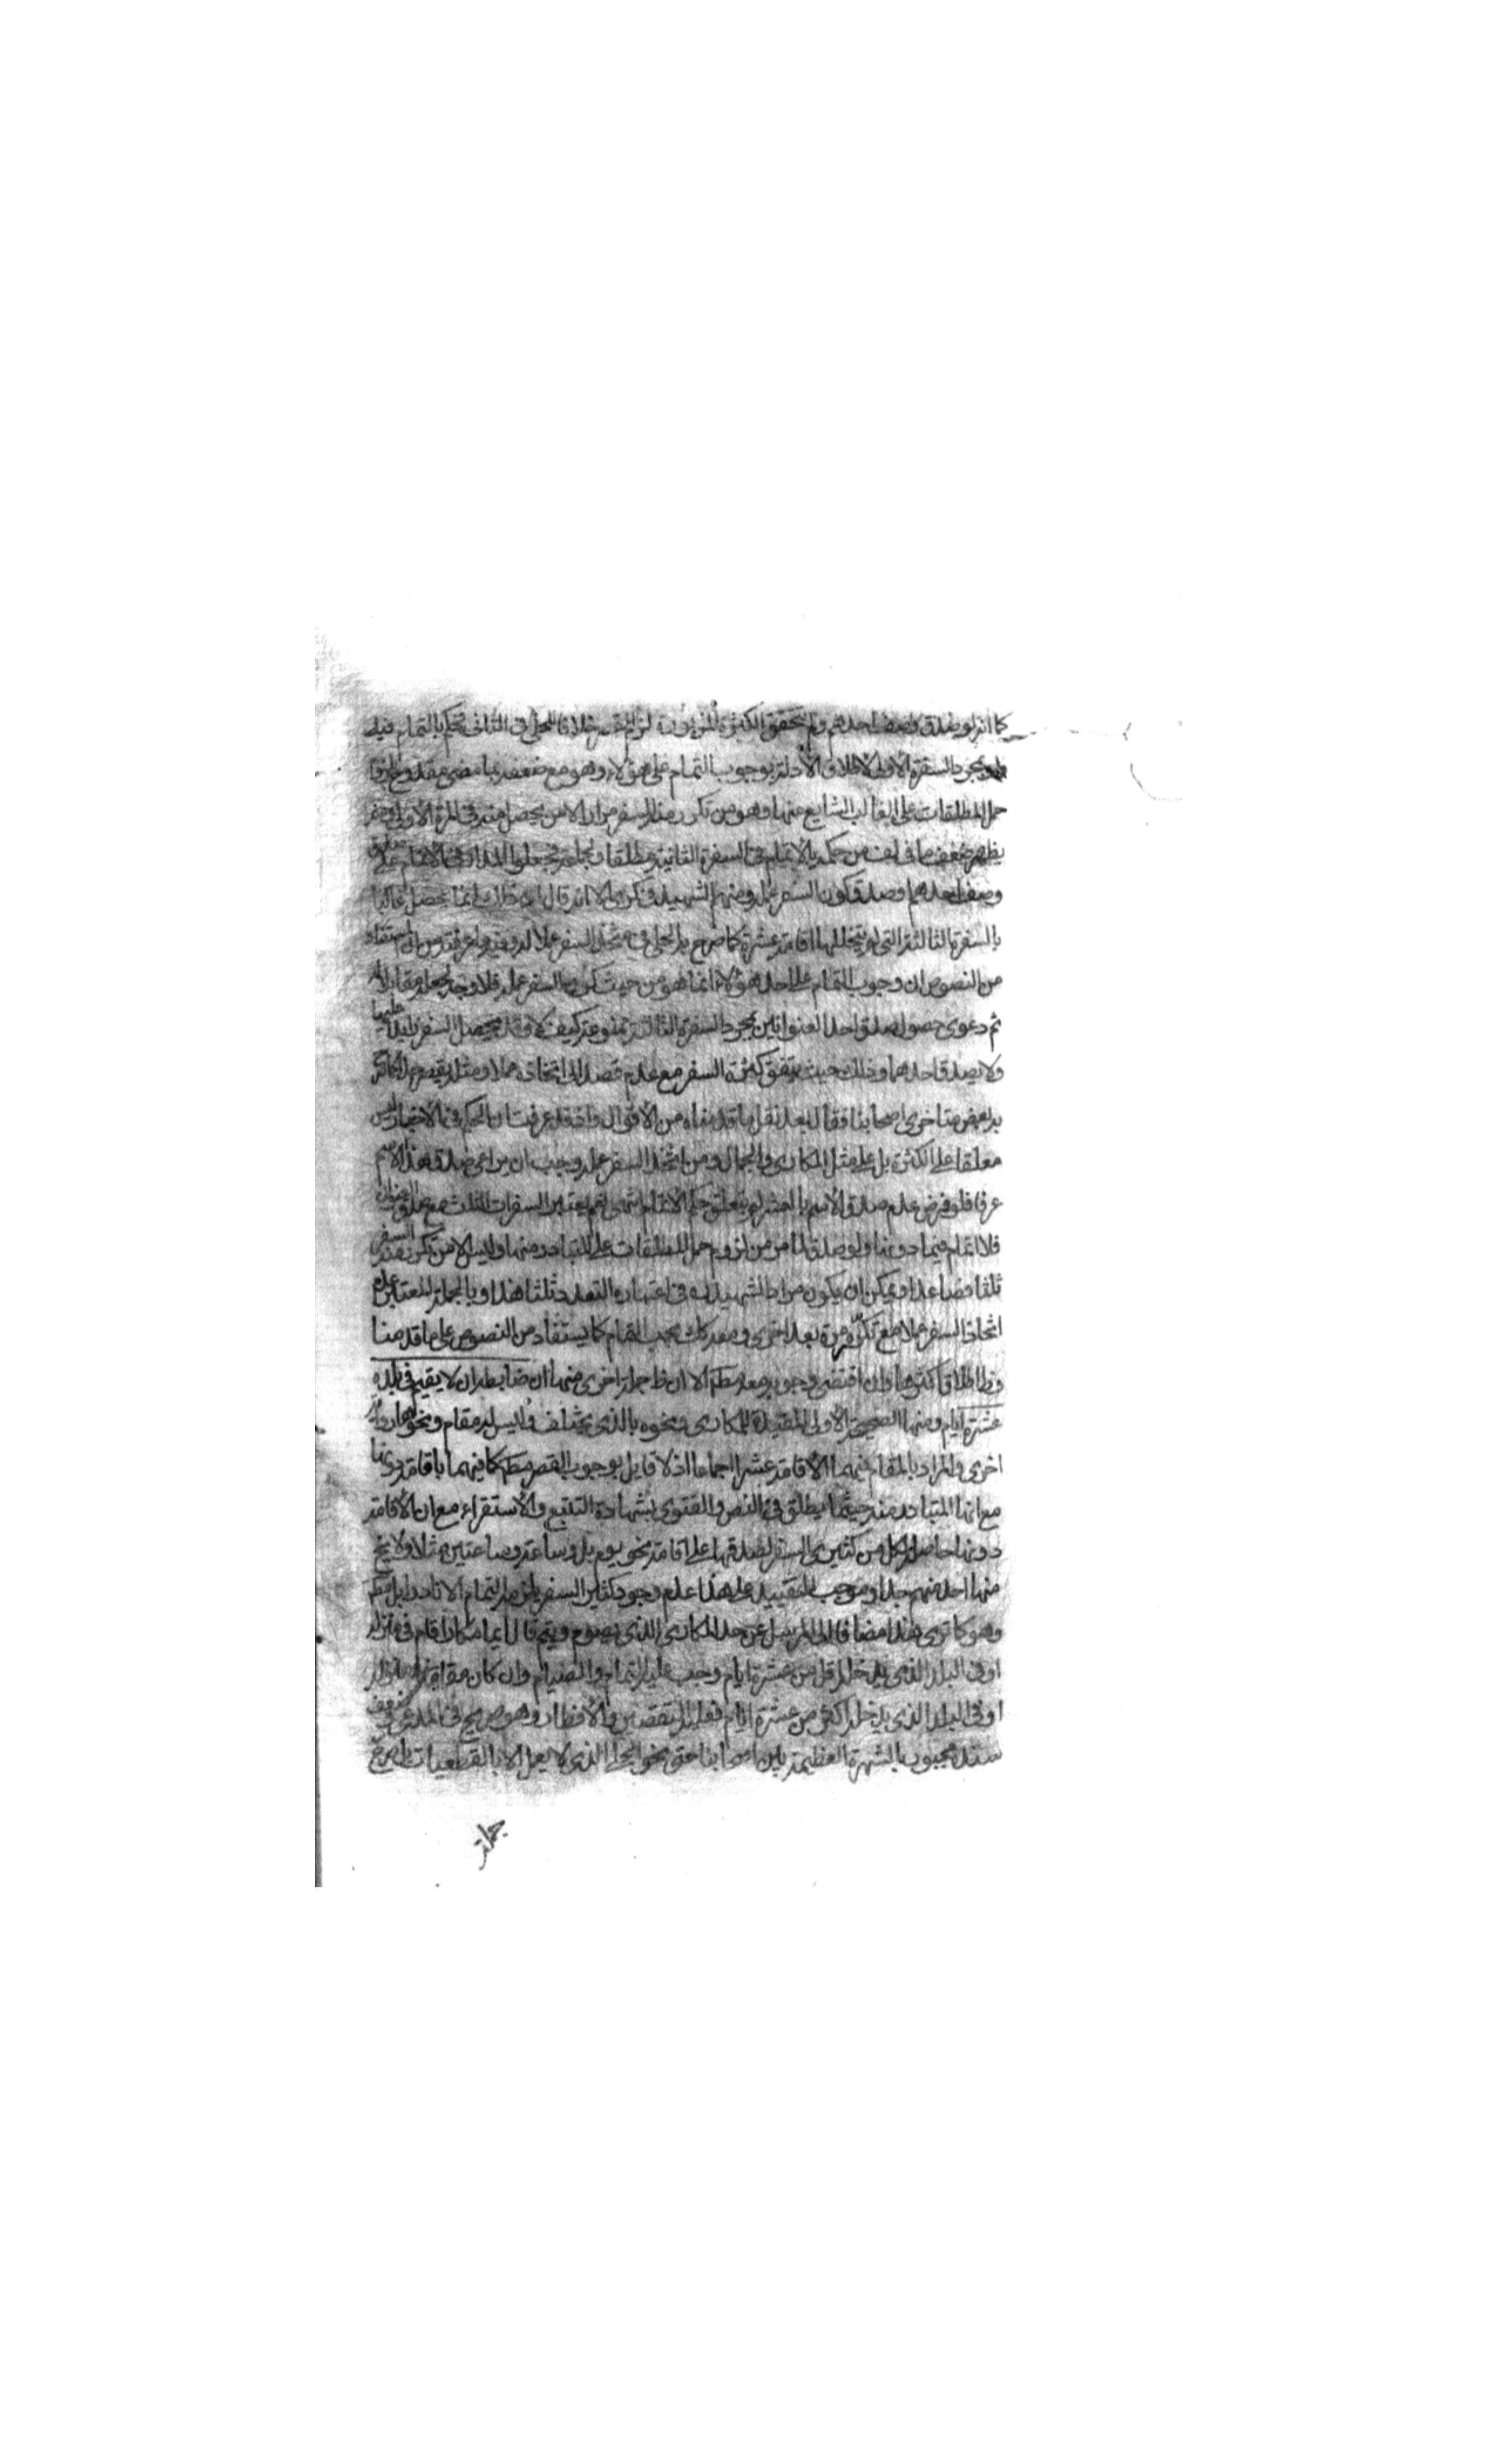 كما انه لو صدق وصف احدهم ولم يتحقق الكثرة المزبورة لزم القصر خلافا للحلي في الثاني فحكم بالتمام فيه
بمجرد السفرة الاولى لاطلاق الادلة بوجوب التمام على هؤلاء وهو مع ضعفه بما مضى من
حمل المطلقات على الغالب الشايع منها وهو من تكرر منه السفر مرارا لا من يحصل منه في المرة الاولى ومنه
يظهر ضعف ما في لف من حكمه بالاتمام في السفرة الثانية مطلقا ولجماعة فجعلوا المدار في الاتمام على صدق
وصف احدهم او صدق كون السفر عمله ومنهم الشهيد في كرى الا انه قال ان ذلك انما يحصل غالبا
بالسفرة الثالثة التي لم يتخلل لها اقامة عشرة كما صرح به الحلي في السفر عملا له وفيه ما عرفته من ان المستفاد
من النصوص ان وجوب التمام على احد هؤلاء انما هو من حيث كون السفر عمله فلا وجه لجعله مقابلا له
ثم دعوى حصول صدق احد العنوانين بمجرد السفرة الثالثة ممنوعة كيف لا وقد يحصل السفر زايدا عليها
ولا يصدق احدهما وذلك حيث يتفق كثرة السفر مع عدم قصد الى اتخاذه عملا ومثله يقصر جدا كما صرح
به بعض متاخري اصحابنا فقال بعد نقل ما قدمناه من الاقوال واذ قد عرفت ان الحكم في الاخبار ليس
معلقا على الكثرة بل على مثل المكاري والجمال ومن اتخذ السفر عمله وجب ان يراعى صدق هذا الاسم
عرفا فلو فرض عدم صدق الاسم بالعشر لم يتعلق حكم الاتمام انتهى نعم يعتبر السفرات الثلث مع صدق العنوان
فلا اتمام فيما دونها ولو صدق لما مر من لزوم حمل المطلقات على المتبادر منها وليس الا من تكرر منه السفر
ثلثا فصاعدا ويمكن ان يكون مراد الشهيد ره في اعتباره التعدد ثلثا هذا وبالجملة المعتبر
اتخاذ السفر عملا مع تكرره مرة بعد اخرى ومعه كك يجب التمام كما يستفاد من النصوص على ما قدمنا
واطلاق اكثرها وان اقتضى وجوبه معه مطلقا الا ان ظ جملة اخرى منها ان ضابطه ان لا يقيم في بلده
عشرة ايام ومنها الصحيحة الاولى المقيدة للمكاري ونحوه بالذي يختلف وليس له مقام ونحوها رواية
اخرى والمراد بالمقام فيهما الاقامة عشرا اجماعا اذ لا قايل بوجوب القصر مطلقا كما فيهما باقامة دونها
مع انها المتبادر منه حيثما يطلق في النص والفتوى بشهادة التتبع والاستقراء مع ان الاقامة
دونها حاصلة لكل من كثيري السفر لصدقها على اقامة نحو يوم بل وساعة وساعتين مثلا ولا يخ
منها احد منهم جدا وموجب التقييد على هذا عدم وجود كثير السفر يلزمه التمام الا نادرا بل
وهو كما ترى هذا مضافا الى المرسل عن حد المكاري الذي يصوم ويتم قال ايما مكار اقام في منزله
او في البلد الذي يدخله اقل من عشرة ايام وجب عليه التمام والصيام وان كان مقامه في منزله
او في البلد الذي يدخله اكثر من عشرة ايام فعليه التقصير والافطار وهو صريح في المدعى وضعف
سنده مجبور بالشهرة العظيمة بين اصحابنا حتى نحو الحلي الذي لا يعمل الا بالقطعيات
جملة